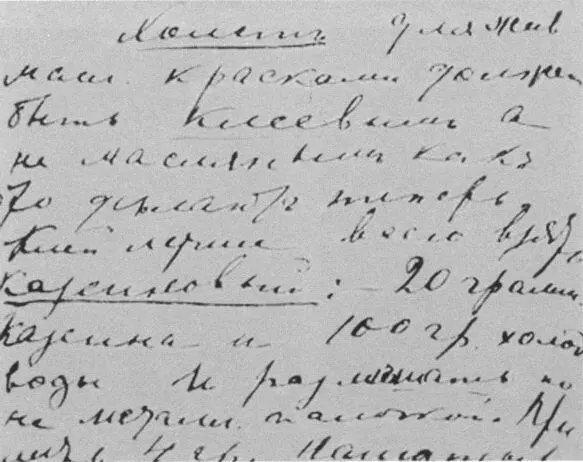 Холстъ для жив
масл. красками должен
быть клеевымъ а
не маслянымъ какъ
то дѣлаютъ теперь.
Клей лучше всего взять
казеиновый: — 20 грамм
казеина и 100 гр. холод
воды и размѣшать но
не металл. палочкой. При
лить 4 гр. нашатыр